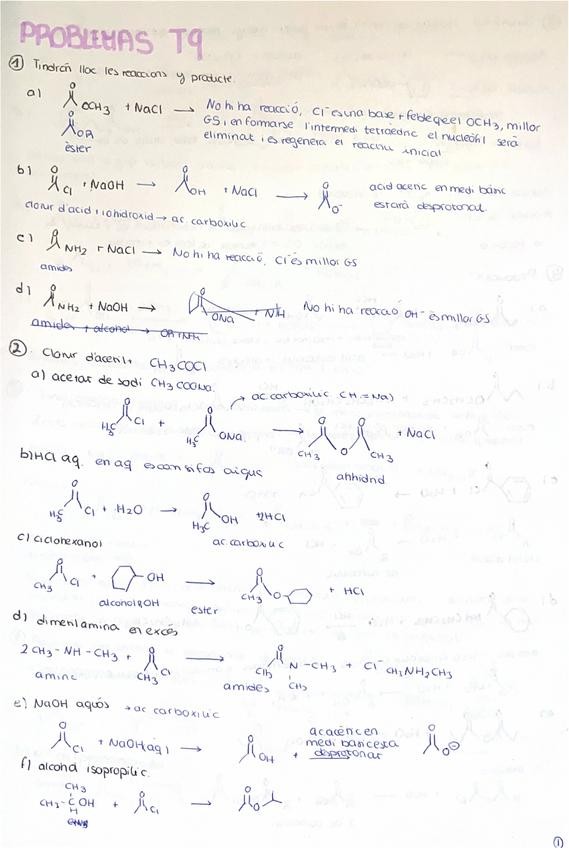 PROBLEMAS T9
① Tindran lloc les reaccions y producte.
a) O OCH3 + NaCl → No hi ha reacció, Cl⁻ és una base + feble que el OCH3, millor
GS, i en formarse l'intermedi tetraedric el nucleòfil serà
eliminat i es regenera el reactiu inicial
O OR
èster
b) O Cl + NaOH → O OH + NaCl → O O⁻ acid acetic en medi bàsic
estarà desprotonat.
clorur d'acid + ionhidroxid → ac. carboxilic
c) O NH2 + NaCl → No hi ha reacció, Cl⁻ és millor GS
amides
d) O NH2 + NaOH → O ONa + NH No hi ha reacció OH⁻ és millor GS
amides + alcohol →
② Clorur d'acetil + CH3COCl
a) acetat de sodi CH3COONa.
→ ac. carboxilic (H = Na)
O H3C Cl + O H3C ONa → O O CH3 O CH3 + NaCl
anhidrid
b) HCl aq. en aq es con si fos aigua
O H3C Cl + H2O → O H3C OH + HCl
ac. carboxilic
c) ciclohexanol
O CH3 Cl + OH → O CH3 O + HCl
alcohol ROH ester
d) dimetilamina en excés
2 CH3-NH-CH3 + O CH3 Cl → O CH3 N-CH3 CH3 + Cl⁻ CH3NH2CH3
amina amides
e) NaOH aquós → ac carboxilic
O Cl + NaOH(aq) → O OH + ac acètic en
medi bàsic esta
desprotonat O O⊖
f) alcohol isopropilic.
CH3
CH3-C OH + O Cl → O O
H
①